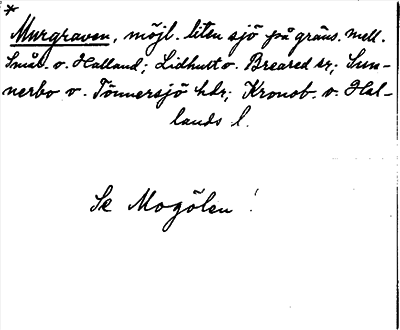 *
Murgraven, möjl. liten sjö på gräns. mell.
Smål. o. Halland; Lidhult o. Breared sr; Sun-
nerbo o. Tönnersjö hdr; Kronob. o. Hal-
lands l.
Se Mogölen!